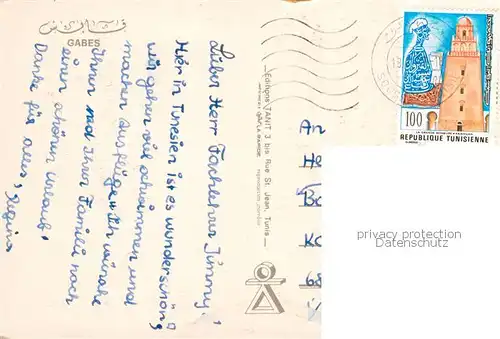 قابس
GABES
Lieber Herr Fachlehrer Jimmy!
Hier in Tunesien ist es wunderschön,
wir gehen viel schwimmen und
machen Ausflüge. Ich wünsche
Ihnen und Ihrer Familie noch
einen schönen Urlaub.
Danke für alles, Regina
Editions TANIT 3 bis Rue St. Jean, Tunis
An
He
Ba
Ko
68
100
REPUBLIQUE TUNISIENNE
privacy protection
Datenschutz